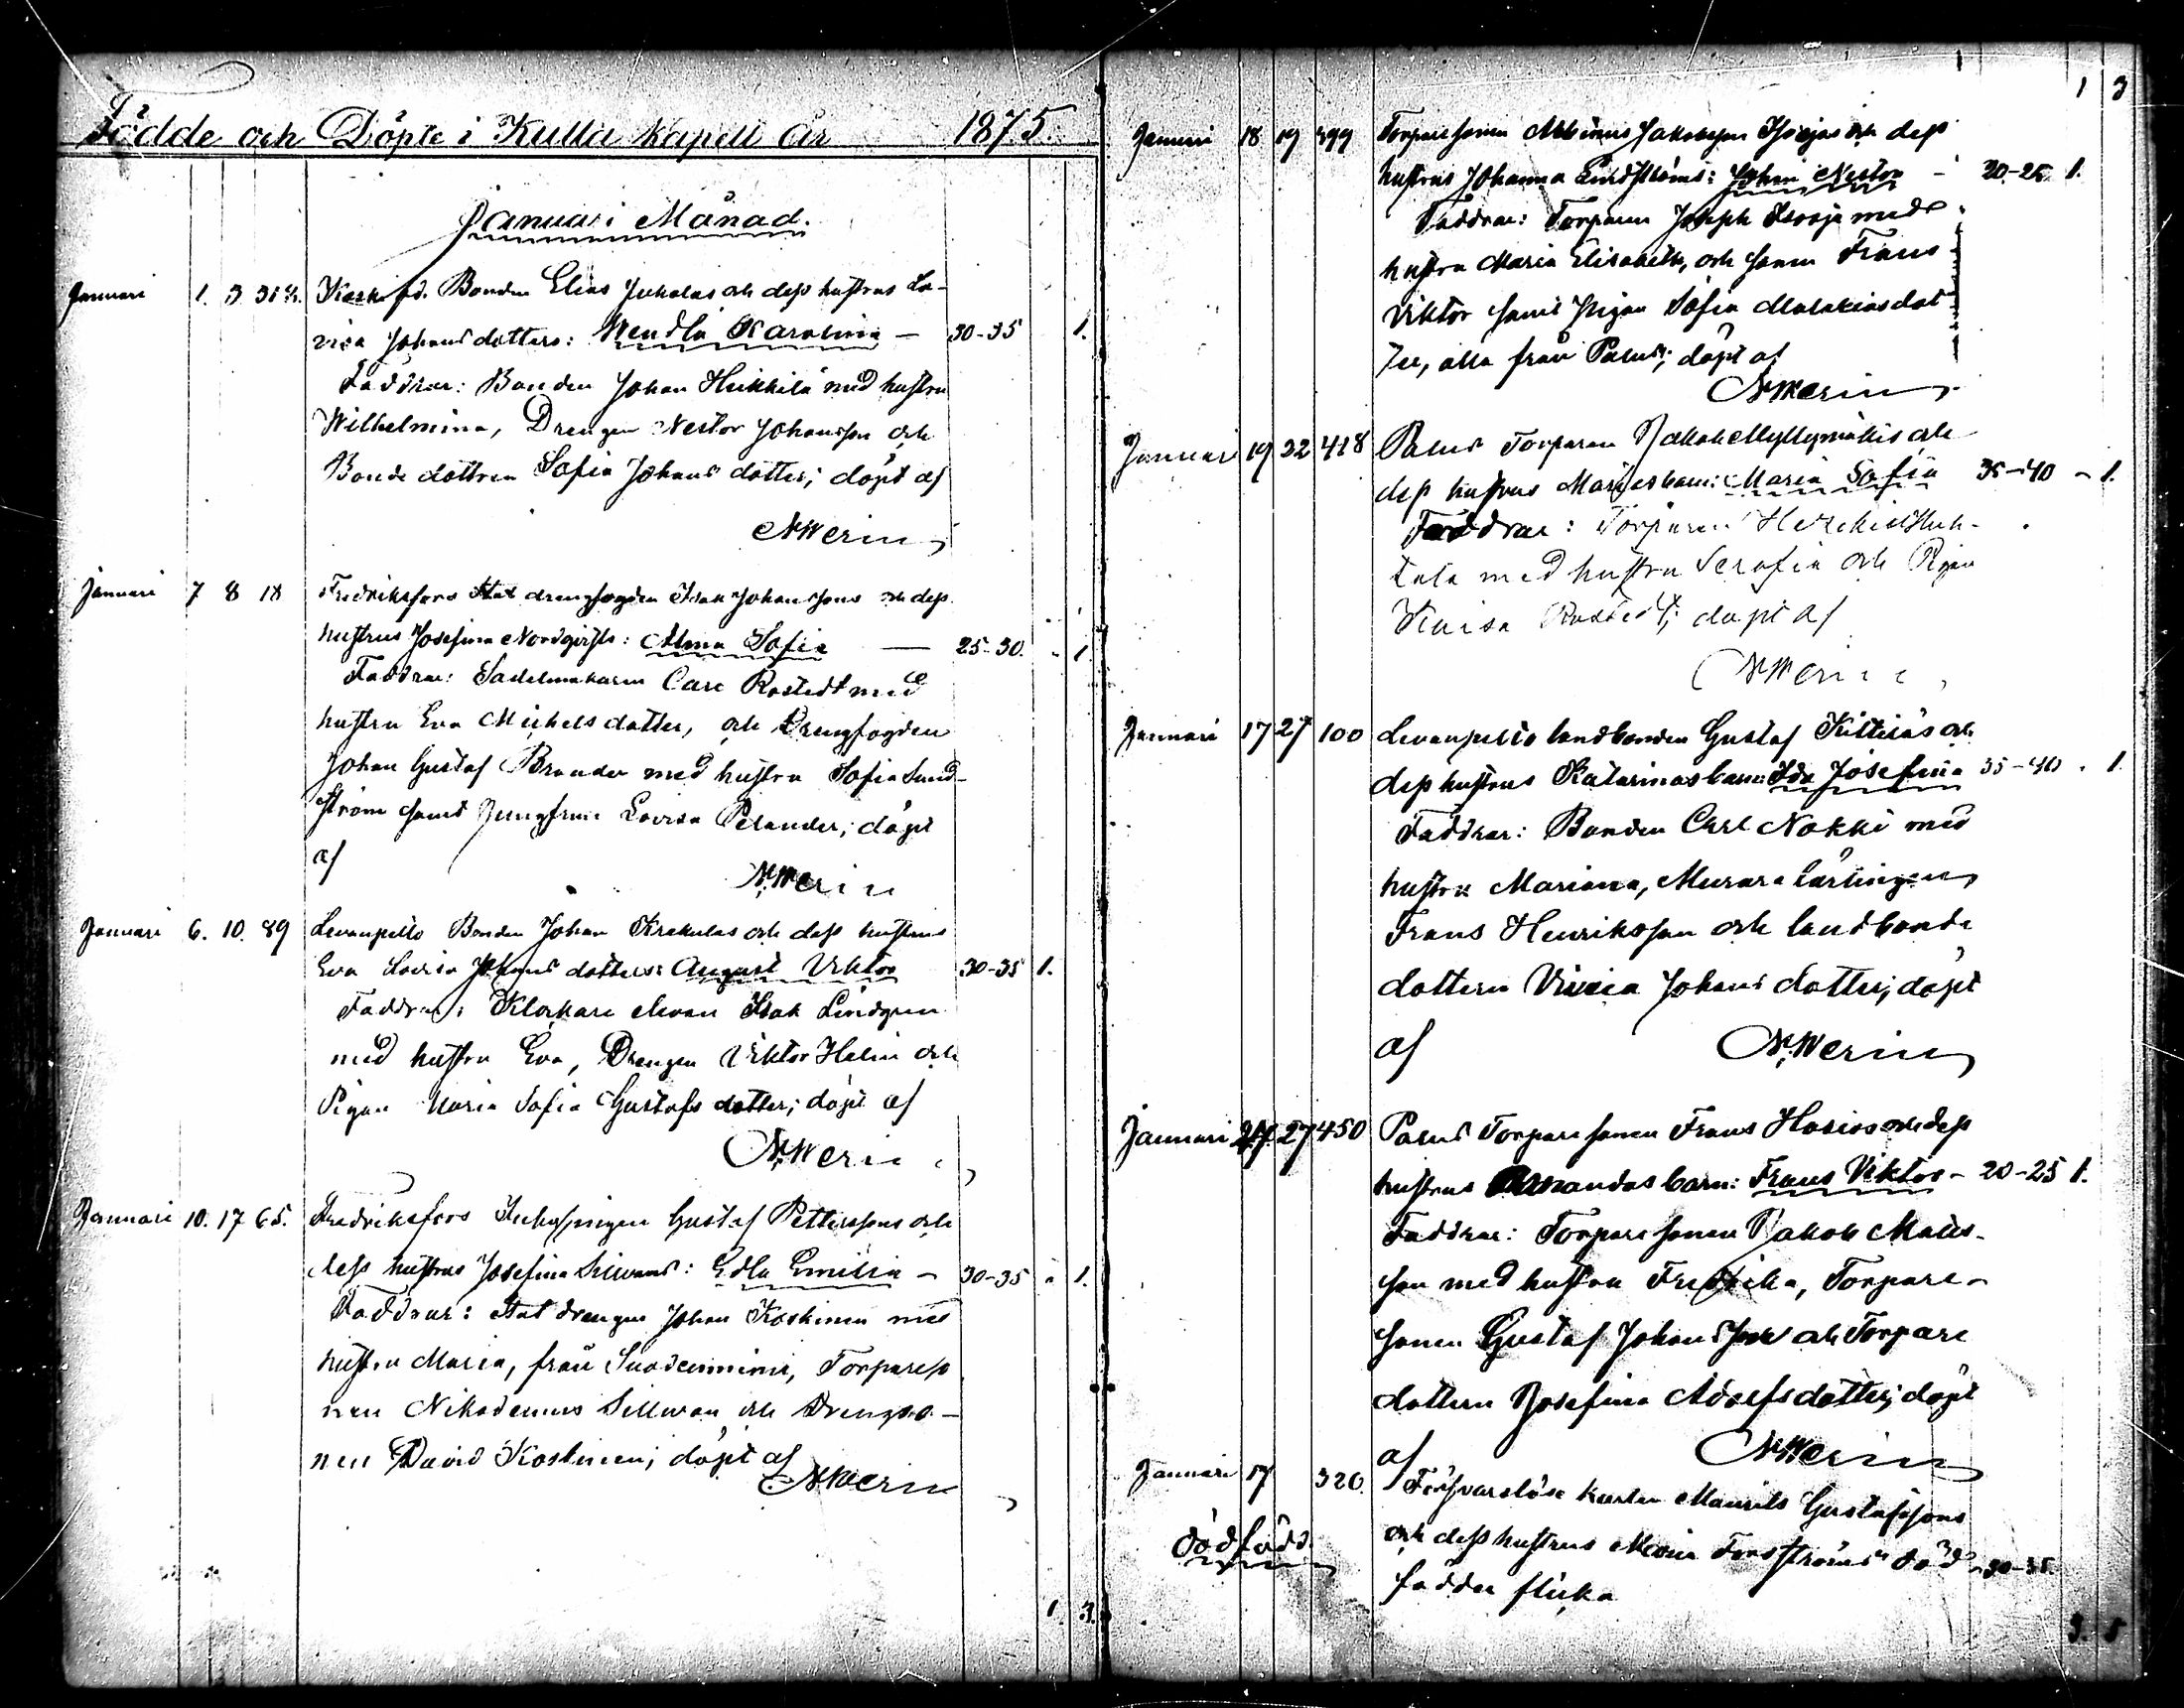 Födde och Döpte i Kulla Kapell år 1875.
Januari Månad.
Januari 1. 3. Koski fd. Bonden Elias Jukolas och dess hustrus Lo-
visa Johansdotters: Wendla Karolina — 30-35 1.
Faddrar: Bonden Johan Heikkilä med hustru
Wilhelmina, Drengen Nestor Johansson och
Bondedottren Sofia Johansdotter; döpt af
Merin
Januari 7 8 18 Fredriksfors Statdrengfogden Isak Johanssons och dess
hustrus Josefina Nordqvists: Alma Sofia — 25-30. 1
Faddrar: Sadelmakaren Carl Rostedt med
hustru Eva Michelsdotter, och Drengfogden
Johan Gustaf Brander med hustru Sofia Lund-
ström samt Jungfrun Lovisa Pelander; döpt
af
Merin
Januari 6. 10. 89 Levanpelto Bonden Johan Krakulas och dess hustrus
Eva Lovisa Johansdotters: August Viktor 30-35 1.
Faddrar: Klockare eleven Isak Lindgren
med hustru Eva, Drengen Viktor Helin och
Pigan Maria Sofia Gustafsdotter; döpt af
Merin
Januari 10. 17 65. Fredriksfors Inhysingen Gustaf Petterssons och
dess hustrus Josefina Sillmans: Edla Emilia — 30-35 1.
Faddrar: Statdrengen Johan Koskinen med
hustru Maria, från Suodenniemi, Torpareso
nen Nikodemus Sillman och Drengso-
nen David Koskinen; döpt af
Merin
1. 3.
1 3
Januari 18 19 399 Torparesonen Jakobsson och dess
hustrus Johanna Lindströms: Johan Nestor - 20-25 1.
Faddrar: Torparen Joseph med
hustru Maria Elisabeth, och sonen Frans
Viktor samt Pigan Sofia Malakiasdot
ter, alla från Palus; döpt af
Merin
Januari 19 22 418 Palus Torparen Jakob Myllymäkis och
dess hustrus Marias barn: Maria Sofia 35-40 - 1.
Faddrar: Torparen Hezekiel Huh-
tala med hustru Serafia och Pigan
Rostedt; döpt af
Merin
Januari 17 27 100 Levanpelto landbonden Gustaf Kittiläs och
dess hustrus Katarinas barn: Ida Josefina 35-40 . 1
Faddrar: Bonden Carl Nokki med
hustru Mariana, Murare lärlingen
Frans Henriksson och landbonde
dottern Johansdotter; döpt
af Merin
Januari 27 450 Palus Torparesonen Frans Hosios och dess
hustrus Amandas barn: Frans Viktor - 20-25 1.
Faddrar: Torparesonen Jakob Matts-
son med hustru Fredrika, Torpare-
sonen Gustaf Johansson och Torpare
dottern Josefina Adolfsdotter; döpt
af Merin
Januari 17 320. Försvarslöse karlen Maurits Gustafssons
och dess hustrus Maria Forsströms död- 30-35
födda flicka
dödfödd
3. 5